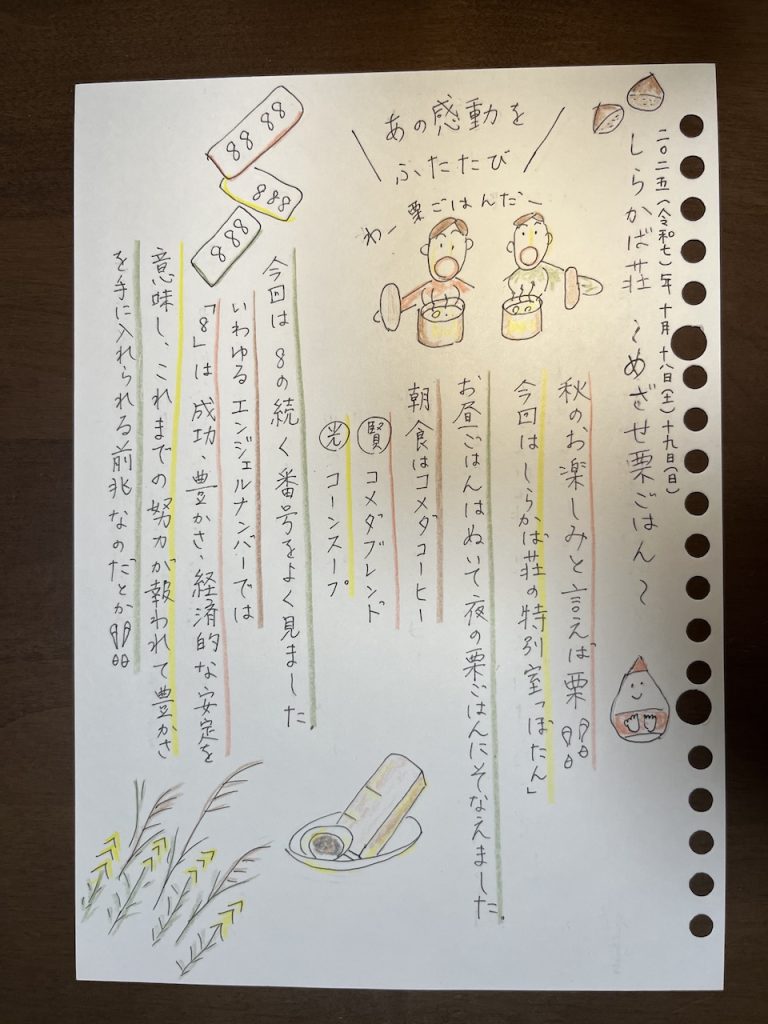 二〇二五（令和七）年 十月 十八日（土）十九日（日）
しらかば荘 〜めざせ栗ごはん〜
あの感動を
ふたたび
わー 栗ごはんだー
秋のお楽しみと言えば栗!!
今回はしらかば荘の特別室「ぼたん」
お昼ごはんはぬいて夜の栗ごはんにそなえました。
朝食はコメダコーヒー
賢 コメダブレンド
光 コーンスープ
88 88
888
888
今回は8の続く番号をよく見ました。
いわゆるエンジェルナンバーでは
「8」は成功、豊かさ、経済的な安定を
意味し、これまでの努力が報われて豊かさ
を手に入れられる前兆なのだとか!!